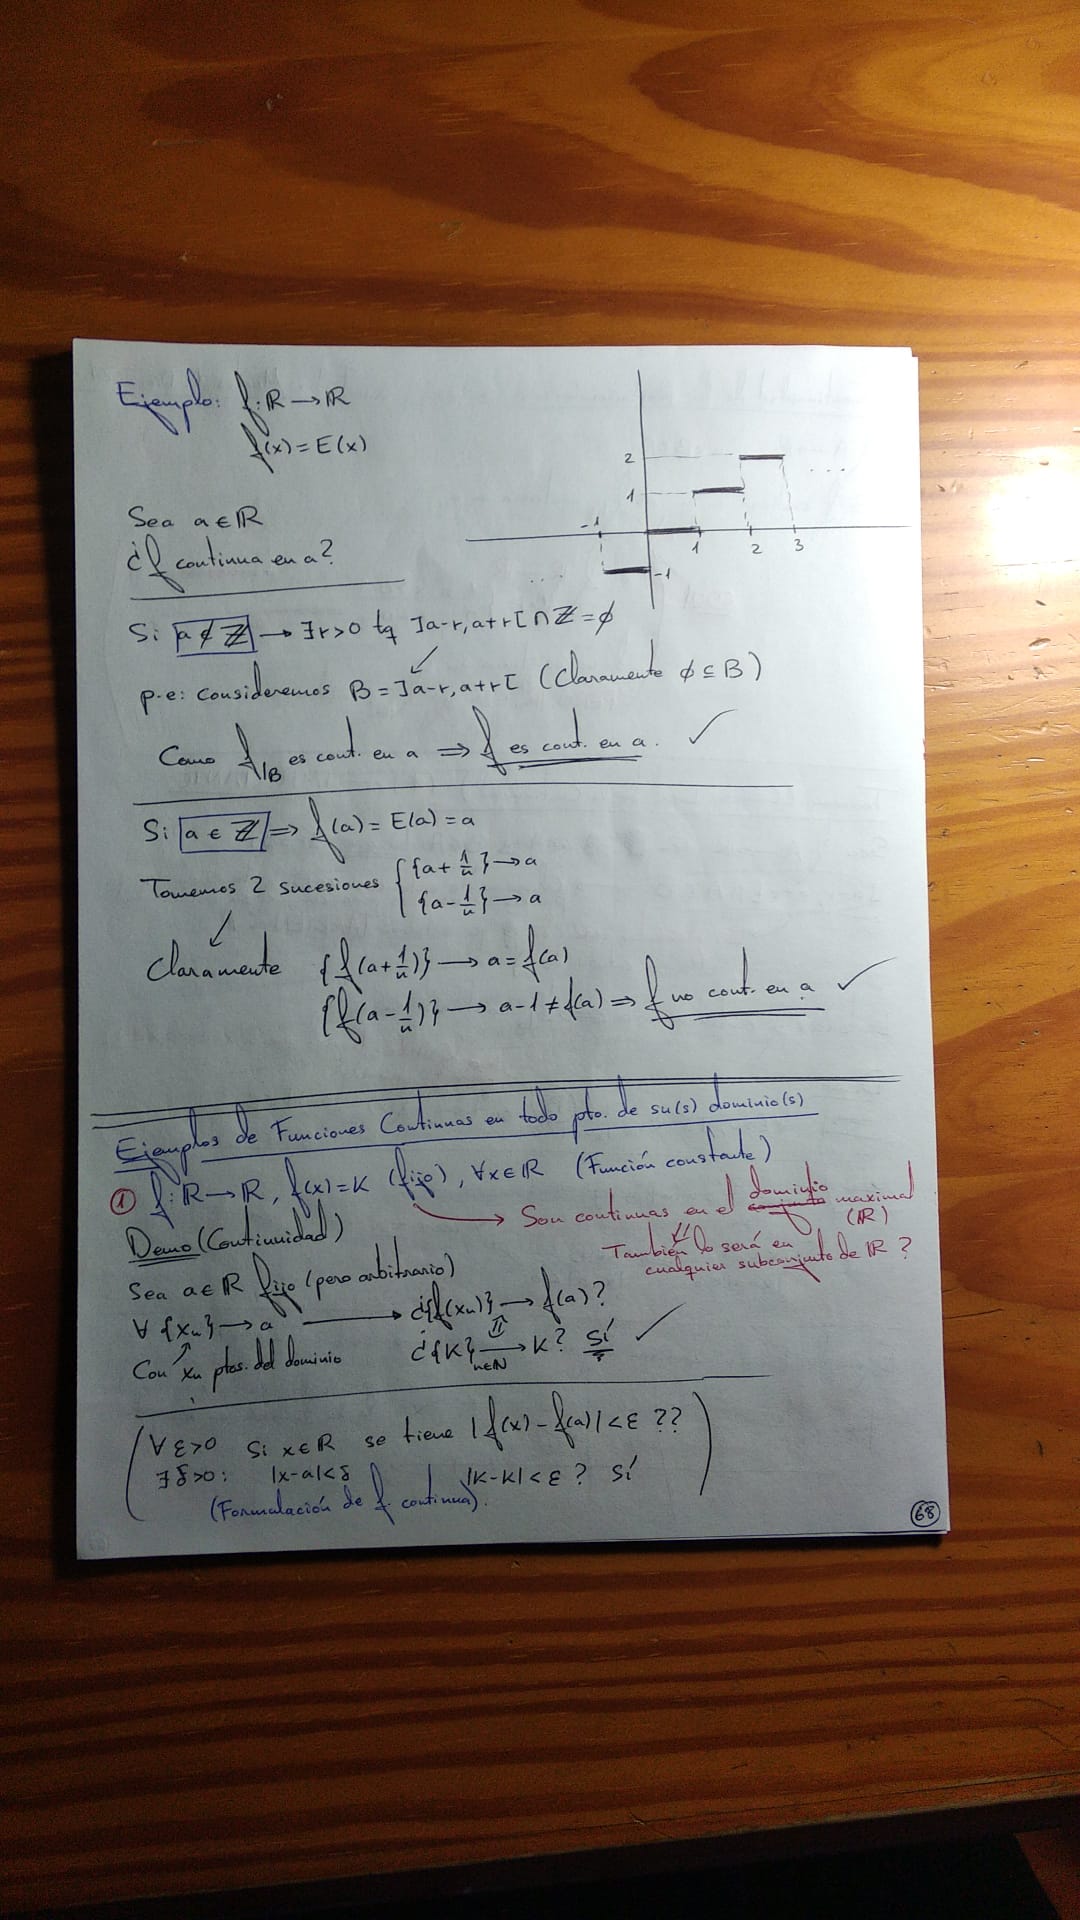 Ejemplo: f: ℝ → ℝ
f(x) = E(x)
2
1
-1
1
2
3
-1
...
...
Sea a ∈ ℝ
¿f continua en a?
Si a ∉ ℤ → ∃r>0 tq ]a-r, a+r[ ∩ ℤ = ∅
p.e: consideremos B = ]a-r, a+r[ (Claramente ∅ ⊆ B)
Como f|B es cont. en a ⇒ f es cont. en a. ✓
Si a ∈ ℤ ⇒ f(a) = E(a) = a
Tomemos 2 sucesiones { {a + 1/n} → a
{a - 1/n} → a
Claramente {f(a + 1/n)} → a = f(a)
{f(a - 1/n)} → a-1 ≠ f(a) ⇒ f no cont. en a ✓
Ejemplos de Funciones Continuas en todo pto. de su(s) dominio(s)
① f: ℝ → ℝ, f(x) = K (fijo), ∀x ∈ ℝ (Función constante)
→ Son continuas en el conjunto dominio maximal
(ℝ)
⇓
También lo será en
cualquier subconjunto de ℝ ?
Demo (Continuidad)
Sea a ∈ ℝ fijo (pero arbitrario)
∀ {xₙ} → a → ¿{f(xₙ)} → f(a)?
Con xₙ ptos. del dominio
⇕
¿{K} n∈ℕ → K? Sí ✓
(∀ ε>0 Si x ∈ ℝ se tiene |f(x) - f(a)| < ε ??
∃ δ>0: |x-a| < δ |K-K| < ε ? Sí
(Formulación de f. continua).)
68